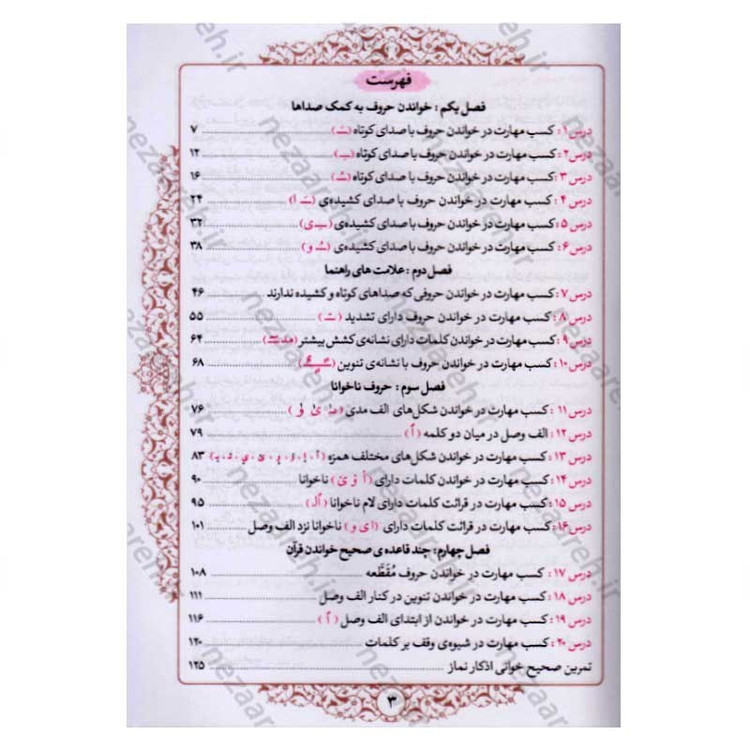 فهرست
فصل یکم : خواندن حروف به کمک صداها
درس ۱ : کسب مهارت در خواندن حروف با صدای کوتاه (ـَـ) ........ ۷
درس ۲ : کسب مهارت در خواندن حروف با صدای کوتاه (ـِـ) ........ ۱۲
درس ۳ : کسب مهارت در خواندن حروف با صدای کوتاه (ـُـ) ........ ۱۶
درس ۴ : کسب مهارت در خواندن حروف با صدای کشیده‌ی (ـَـ ا) ........ ۲۴
درس ۵ : کسب مهارت در خواندن حروف با صدای کشیده‌ی (ـِـ ی) ........ ۳۲
درس ۶ : کسب مهارت در خواندن حروف با صدای کشیده‌ی (ـُـ و) ........ ۳۸
فصل دوم : علامت های راهنما
درس ۷ : کسب مهارت در خواندن حروفی که صداهای کوتاه و کشیده ندارند ........ ۴۶
درس ۸ : کسب مهارت در خواندن حروف دارای تشدید (ـّـ) ........ ۵۵
درس ۹ : کسب مهارت در خواندن کلمات دارای نشانه‌ی کشش بیشتر (مدـٓـ) ........ ۶۴
درس ۱۰ : کسب مهارت در خواندن حروف با نشانه‌ی تنوین (ـًـٍـٌ) ........ ۶۸
فصل سوم : حروف ناخوانا
درس ۱۱ : کسب مهارت در خواندن شکل‌های الف مدی ........ ۷۶
درس ۱۲ : الف وصل در میان دو کلمه (اْ) ........ ۷۹
درس ۱۳ : کسب مهارت در خواندن شکل‌های مختلف همزه ........ ۸۳
درس ۱۴ : کسب مهارت در خواندن کلمات دارای (اْ وْ یْ) ناخوانا ........ ۹۰
درس ۱۵ : کسب مهارت در قرائت کلمات دارای لام ناخوانا (اْلْ) ........ ۹۵
درس ۱۶ : کسب مهارت در قرائت کلمات دارای (ا ی و) ناخوانا نزد الف وصل ........ ۱۰۱
فصل چهارم : چند قاعده ی صحیح خواندن قرآن
درس ۱۷ : کسب مهارت در خواندن حروف مُقَطَّعه ........ ۱۰۸
درس ۱۸ : کسب مهارت در خواندن تنوین در کنار الف وصل ........ ۱۱۱
درس ۱۹ : کسب مهارت در خواندن از ابتدای الف وصل (اْ) ........ ۱۱۶
درس ۲۰ : کسب مهارت در شیوه‌ی وقف بر کلمات ........ ۱۲۰
تمرین صحیح خوانی اذکار نماز ........ ۱۲۵
۳
nezaareh.ir